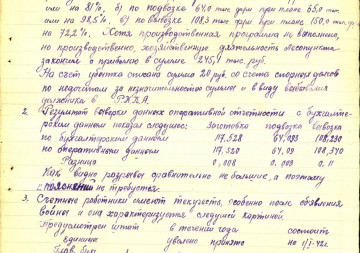 или на 81%, б) по подвозке 64,0 тыс. фдм при плане 65,0 тыс.
или на 98,5%, в) по вывозке 108,3 тыс. фдм при плане 150,0 тыс.
на 72,2%. Хотя производственная программа не выполнена,
но производственно-хозяйственную деятельность лесопункт
закончил с прибылью в сумме 245,1 тыс. руб.
На счет убытка списана сумма 20 руб. со счета спорных долгов
по недостачам за незначительностью суммы и в виду
должника в Р.К.К.А.
2. Результат сверки данных оперативной отчетности с бухгалтер-
скими данными показал следующее: Заготовка подвозка вывозка
по бухгалтерским данным 17,528 64,099 108,280
по оперативным данным 17,520 64,09 108,370
Разница 0,008 0,009 0,11
Как видно разрывы сравнительно не большие, а поэтому
пояснений не требуется.
3. Счетные работники имеют текучесть, особенно после объявления
войны и она характеризуется следущей картиной
Предусмотрен штат в течении года состоит
единице уволено принято на 1/I-42г.
Глав. бух.